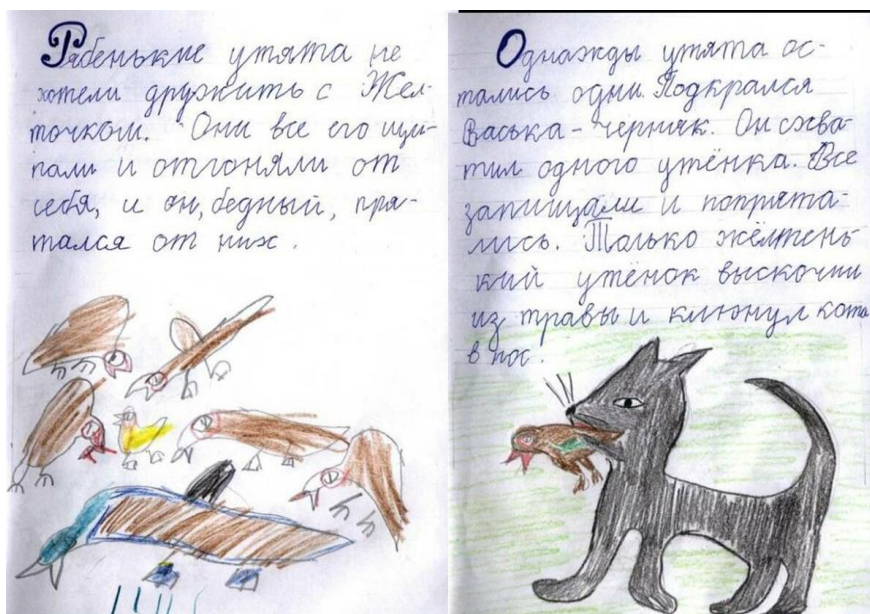 Рябенькие утята не
хотели дружить с Жел-
точком. Они все его щи-
пали и отгоняли от
себя, и он, бедный, пря-
тался от них.
Однажды утята ос-
тались одни. Подкрался
Васька - черняк. Он схва-
тил одного утёнка. Все
запищали и попрята-
лись. Только жёлтень
кий утёнок выскочил
из травы и клюнул кота
в нос.